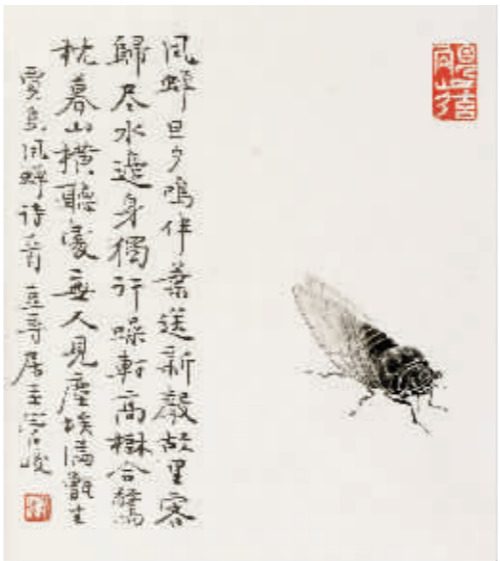 風蟬旦夕鳴伴葉送新聲故里客
歸尽水邊身獨行噪軒高樹合驚
枕暮山横聽處無人見塵埃滿甑生
賈島風蟬詩 居主 峻